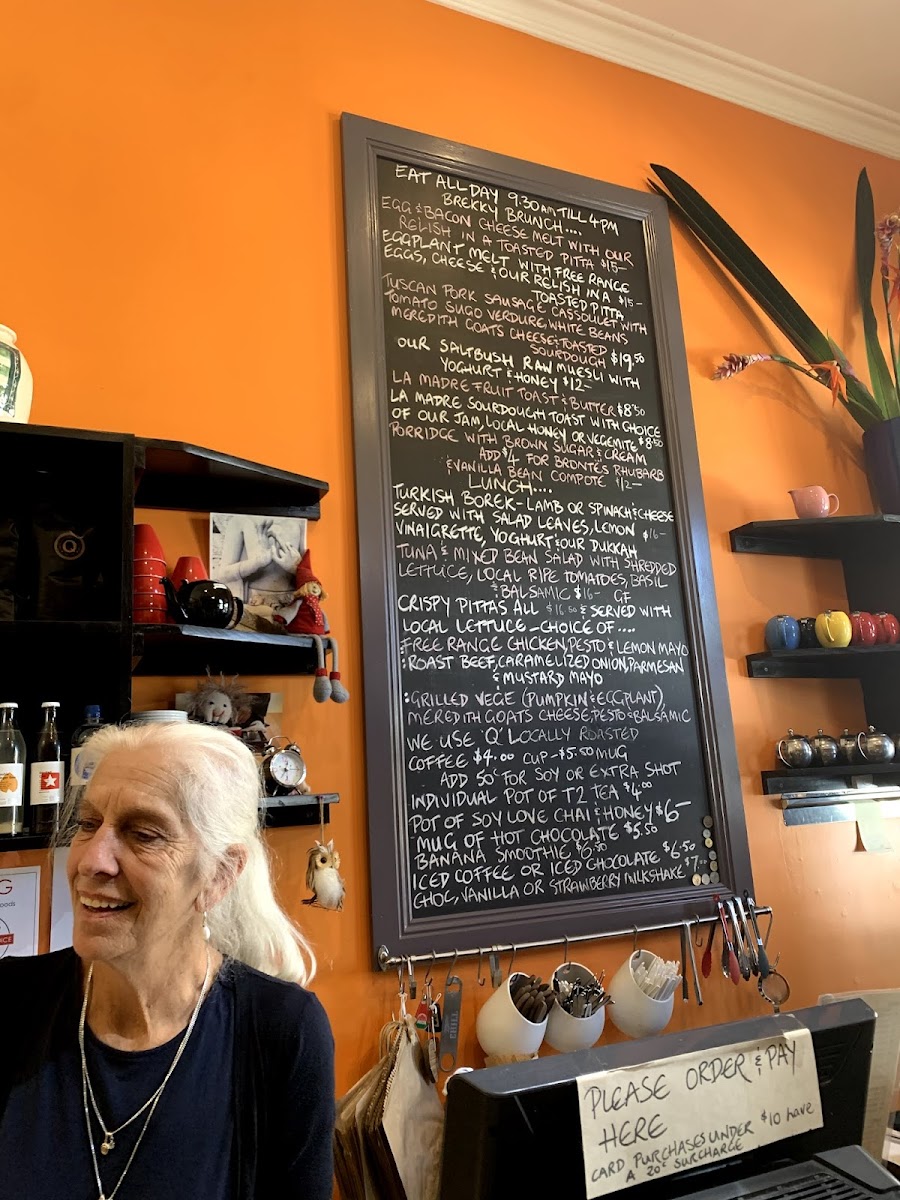 EAT ALL DAY 9.30AM TILL 4PM
BREKKY BRUNCH....
EGG & BACON CHEESE MELT WITH OUR
RELISH IN A TOASTED PITTA $15-
EGGPLANT MELT WITH FREE RANGE
EGGS, CHEESE & OUR RELISH IN A
TOASTED PITTA $15-
TUSCAN PORK SAUSAGE CASSOULET WITH
TOMATO SUGO VERDURE, WHITE BEANS
MEREDITH GOATS CHEESE & TOASTED
SOURDOUGH $19.50
OUR SALTBUSH RAW MUESLI WITH
YOGHURT & HONEY $12-
LA MADRE FRUIT TOAST & BUTTER $8.50
LA MADRE SOURDOUGH TOAST WITH CHOICE
OF OUR JAM, LOCAL HONEY OR VEGEMITE $8.50
PORRIDGE WITH BROWN SUGAR & CREAM
ADD $4 FOR BRONTE'S RHUBARB
& VANILLA BEAN COMPOTE $12-
LUNCH....
TURKISH BOREK - LAMB OR SPINACH & CHEESE
SERVED WITH SALAD LEAVES, LEMON
VINAIGRETTE, YOGHURT & OUR DUKKAH $16-
TUNA & MIXED BEAN SALAD WITH SHREDDED
LETTUCE, LOCAL RIPE TOMATOES, BASIL
& BALSAMIC $16- GF
CRISPY PITTAS ALL $16.50 & SERVED WITH
LOCAL LETTUCE - CHOICE OF ....
: FREE RANGE CHICKEN, PESTO & LEMON MAYO
: ROAST BEEF, CARAMELIZED ONION, PARMESAN
& MUSTARD MAYO
: GRILLED VEGE (PUMPKIN & EGGPLANT),
MEREDITH GOATS CHEESE, PESTO & BALSAMIC
WE USE 'Q' LOCALLY ROASTED
COFFEE $4.00 CUP - $5.50 MUG
ADD 50c FOR SOY OR EXTRA SHOT
INDIVIDUAL POT OF T2 TEA $4.00
POT OF SOY LOVE CHAI & HONEY $6-
MUG OF HOT CHOCOLATE $5.50
BANANA SMOOTHIE $6.50
ICED COFFEE OR ICED CHOCOLATE $6.50
CHOC, VANILLA OR STRAWBERRY MILKSHAKE $7.00
Q
G
oods
NCE
PLEASE ORDER & PAY
HERE
CARD PURCHASES UNDER $10 have
A 20c SURCHARGE